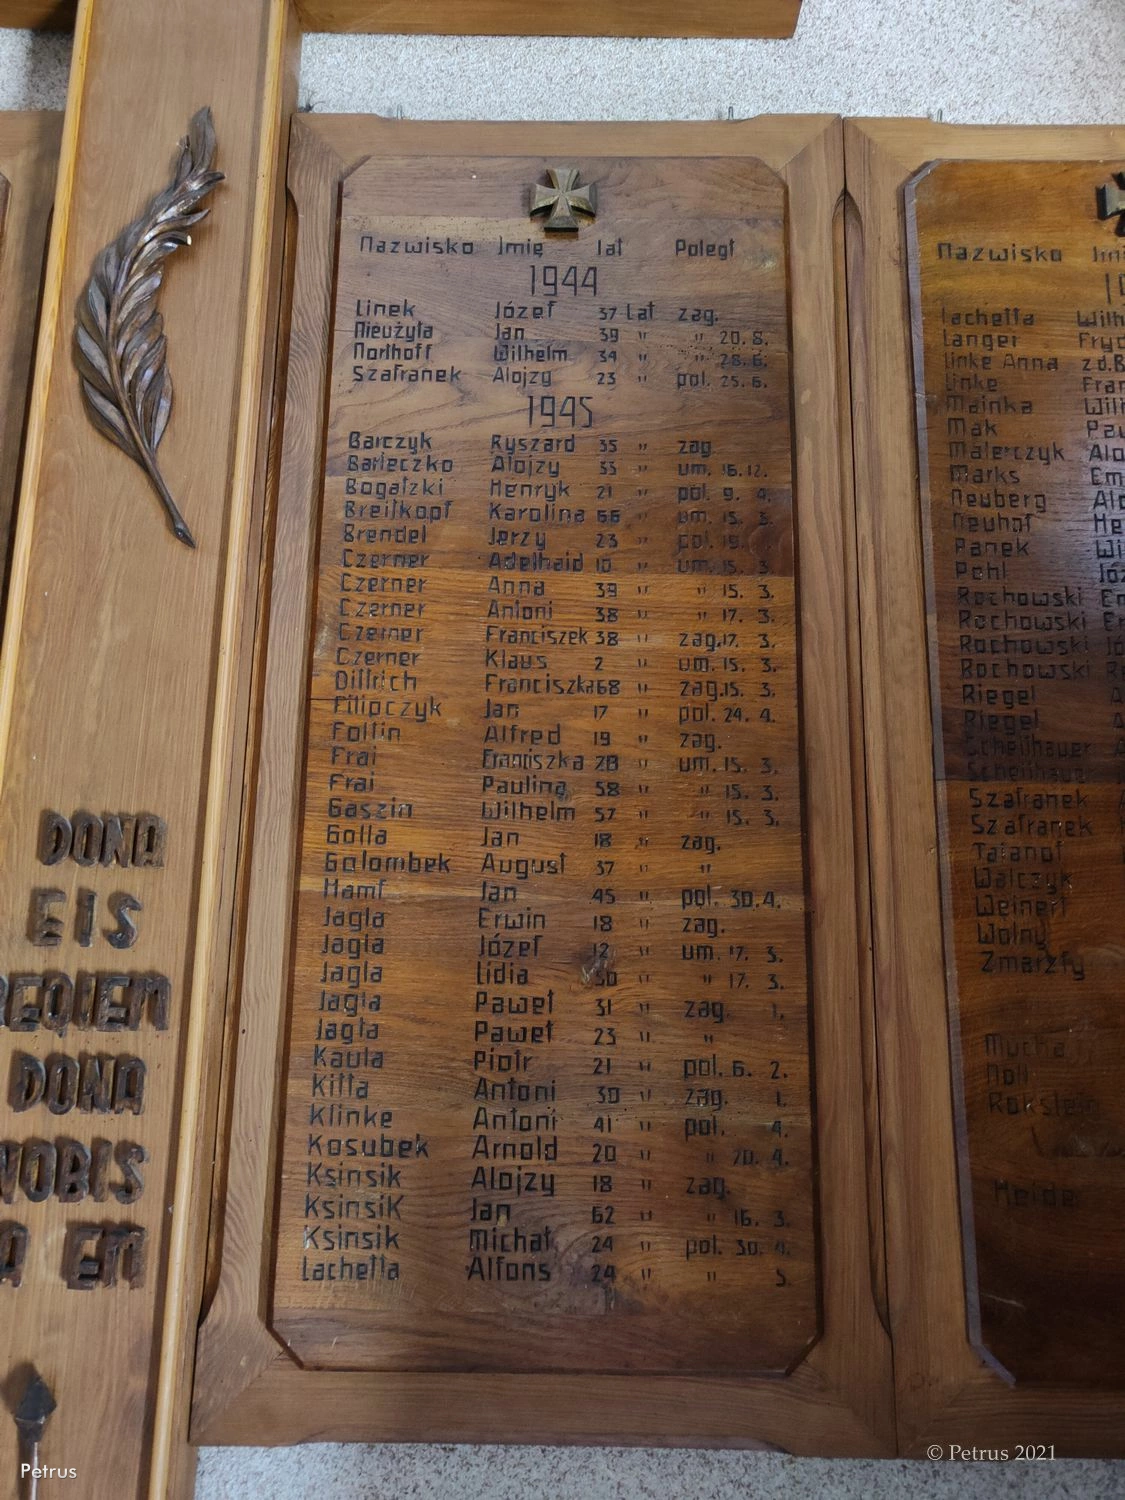 DONA
EIS
REQIEM
DONA
NOBIS
EM
Nazwisko Imię lat Poległ
1944
Linek Józef 37 Lat zag.
Nieużyła Jan 39 " " 20. 8.
Northoff Wilhelm 34 " " 28. 6.
Szafranek Alojzy 23 " pol. 25. 6.
1945
Barczyk Ryszard 35 " zag.
Barteczko Alojzy 35 " um. 16. 12.
Bogatzki Henryk 21 " pol. 9. 4.
Breitkopf Karolina 66 " um. 15. 3.
Brendel Jerzy 23 " pol. 19.
Czerner Adelhaid 10 " um. 15. 3.
Czerner Anna 39 " " 15. 3.
Czerner Antoni 38 " " 17. 3.
Czerner Franciszek 38 " zag. 17. 3.
Czerner Klaus 2 " um. 15. 3.
Dittrich Franciszka 68 " zag. 15. 3.
Filipczyk Jan 17 " pol. 24. 4.
Foltin Alfred 19 " zag.
Frai Franciszka 28 " um. 15. 3.
Frai Paulina 58 " " 15. 3.
Gaszin Wilhelm 57 " " 15. 3.
Golla Jan 18 " zag.
Golombek August 37 " "
Hamf Jan 45 " pol. 30. 4.
Jagła Erwin 18 " zag.
Jagła Józef 12 " um. 17. 3.
Jagła Lidia 30 " " 17. 3.
Jagła Paweł 31 " zag. 1.
Jagła Paweł 23 " "
Kauła Piotr 21 " pol. 6. 2.
Kitta Antoni 30 " zag. 1.
Klinke Antoni 41 " pol. 4.
Kosubek Arnold 20 " " 20. 4.
Ksinsik Alojzy 18 " zag.
Ksinsik Jan 62 " " 16. 3.
Ksinsik Michał 24 " pol. 30. 4.
Lachetta Alfons 24 " " 5.
Nazwisko
Lachetta
Langer
Linke Anna
Linke
Mainka
Mak
Malerczyk
Marks
Neuberg
Neuhof
Panek
Pohl
Rochowski
Rochowski
Rochowski
Rochowski
Riegel
Riegel
Scheithauer
Scheithauer
Szafranek
Szafranek
Walczyk
Weinert
Wolny
Zmarzły
Mucha
Noll
Rokstein
Heide
Petrus
© Petrus 2021